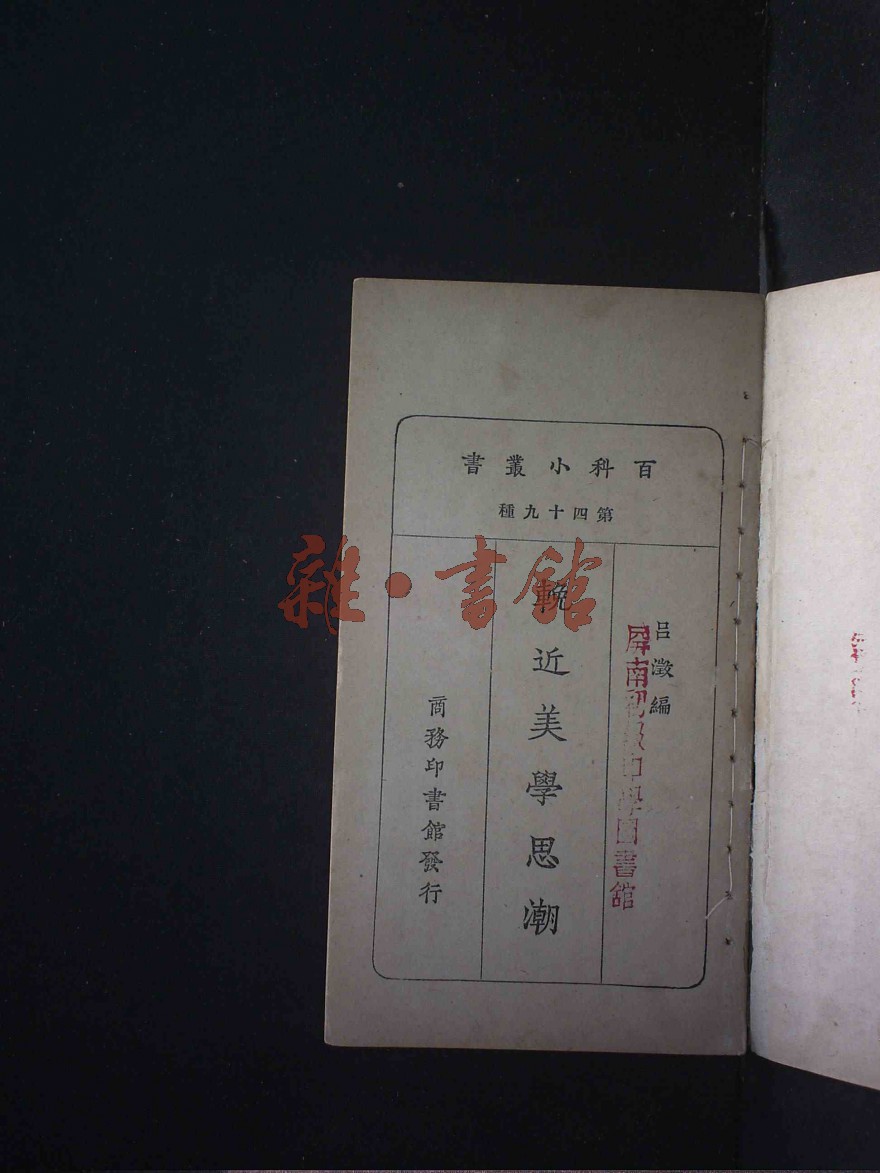 百科小叢書
第四十九種
呂澂編
晚近美學思潮
商務印書館發行
屏南初級中學圖書館
雜·書館